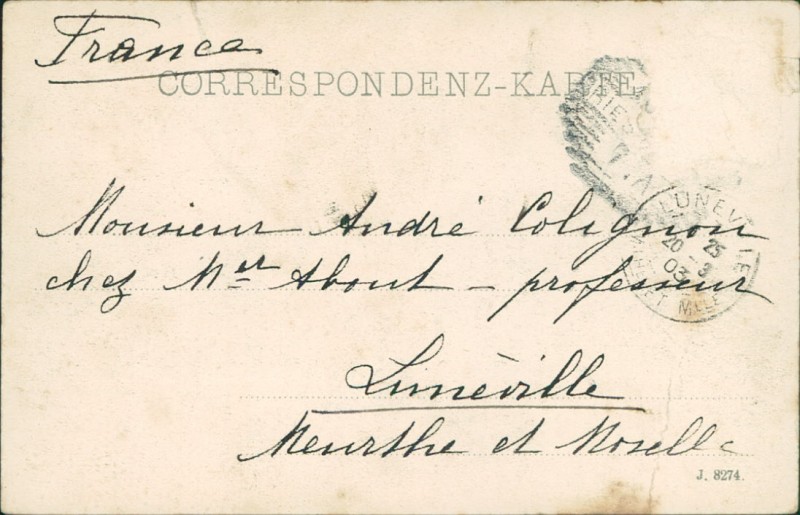 France
CORRESPONDENZ-KARTE
Monsieur André Colignon
chez Mer About - professeur
Lunéville
Meurthe et Moselle
LUNEVILLE
20 25
3
03
ET MLLE
J. 8274.